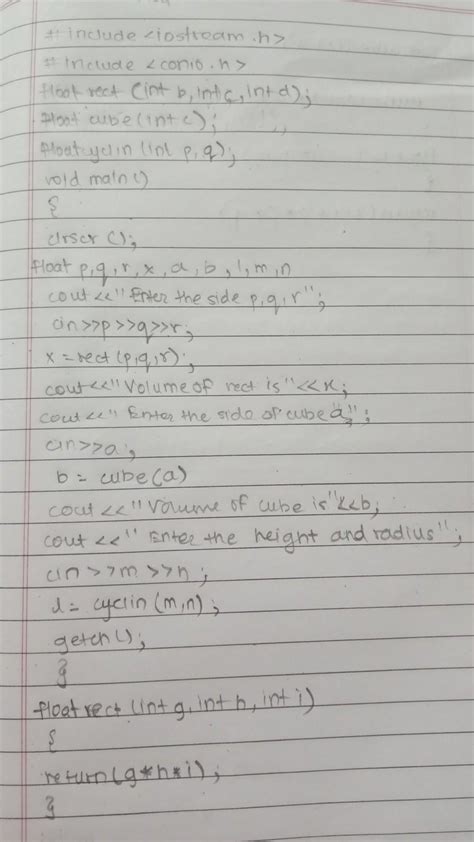 # include <iostream.h>
# include <conio.h>
float rect (int b, int c, int d);
float cube (int c);
float cyclin (int p, q);
void main()
{
clrscr ();
float p,q,r, x, a, b, l, m, n
cout<<"Enter the side p,q,r";
cin>>p>>q>>r;
x = rect (p,q,r);
cout<<"Volume of rect is"<<x;
cout<<" Enter the side of cube a";
cin>>a;
b = cube (a)
cout <<"Volume of cube is"<<b;
cout <<" Enter the height and radius";
cin >>m >>n;
l = cyclin (m,n);
getch();
}
float rect (int g, int h, int i)
{
return(g*h*i);
}